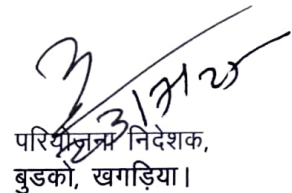 परियोजना निदेशक,
बुडको, खगड़िया।